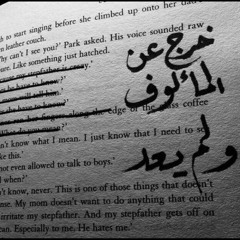 th to start singing before she climbed up onto her dad
n leather couch.
Why can't I see you?" Park asked. His voice sounded raw
ure. Like something just hatched.
my stepfather is
along the edge of the glass coffee
n't know what I mean. I just know that I need to
ke this.'
not even allowed to talk to boys.'
l when?'
n't know, never. This is one of those things that doesn't
nse. My mom doesn't want to do anything that could
irritate my stepfather. And my stepfather gets off on
ean. Especially to me. He hates me.'
خرج عن
المألوف
ولم يعد